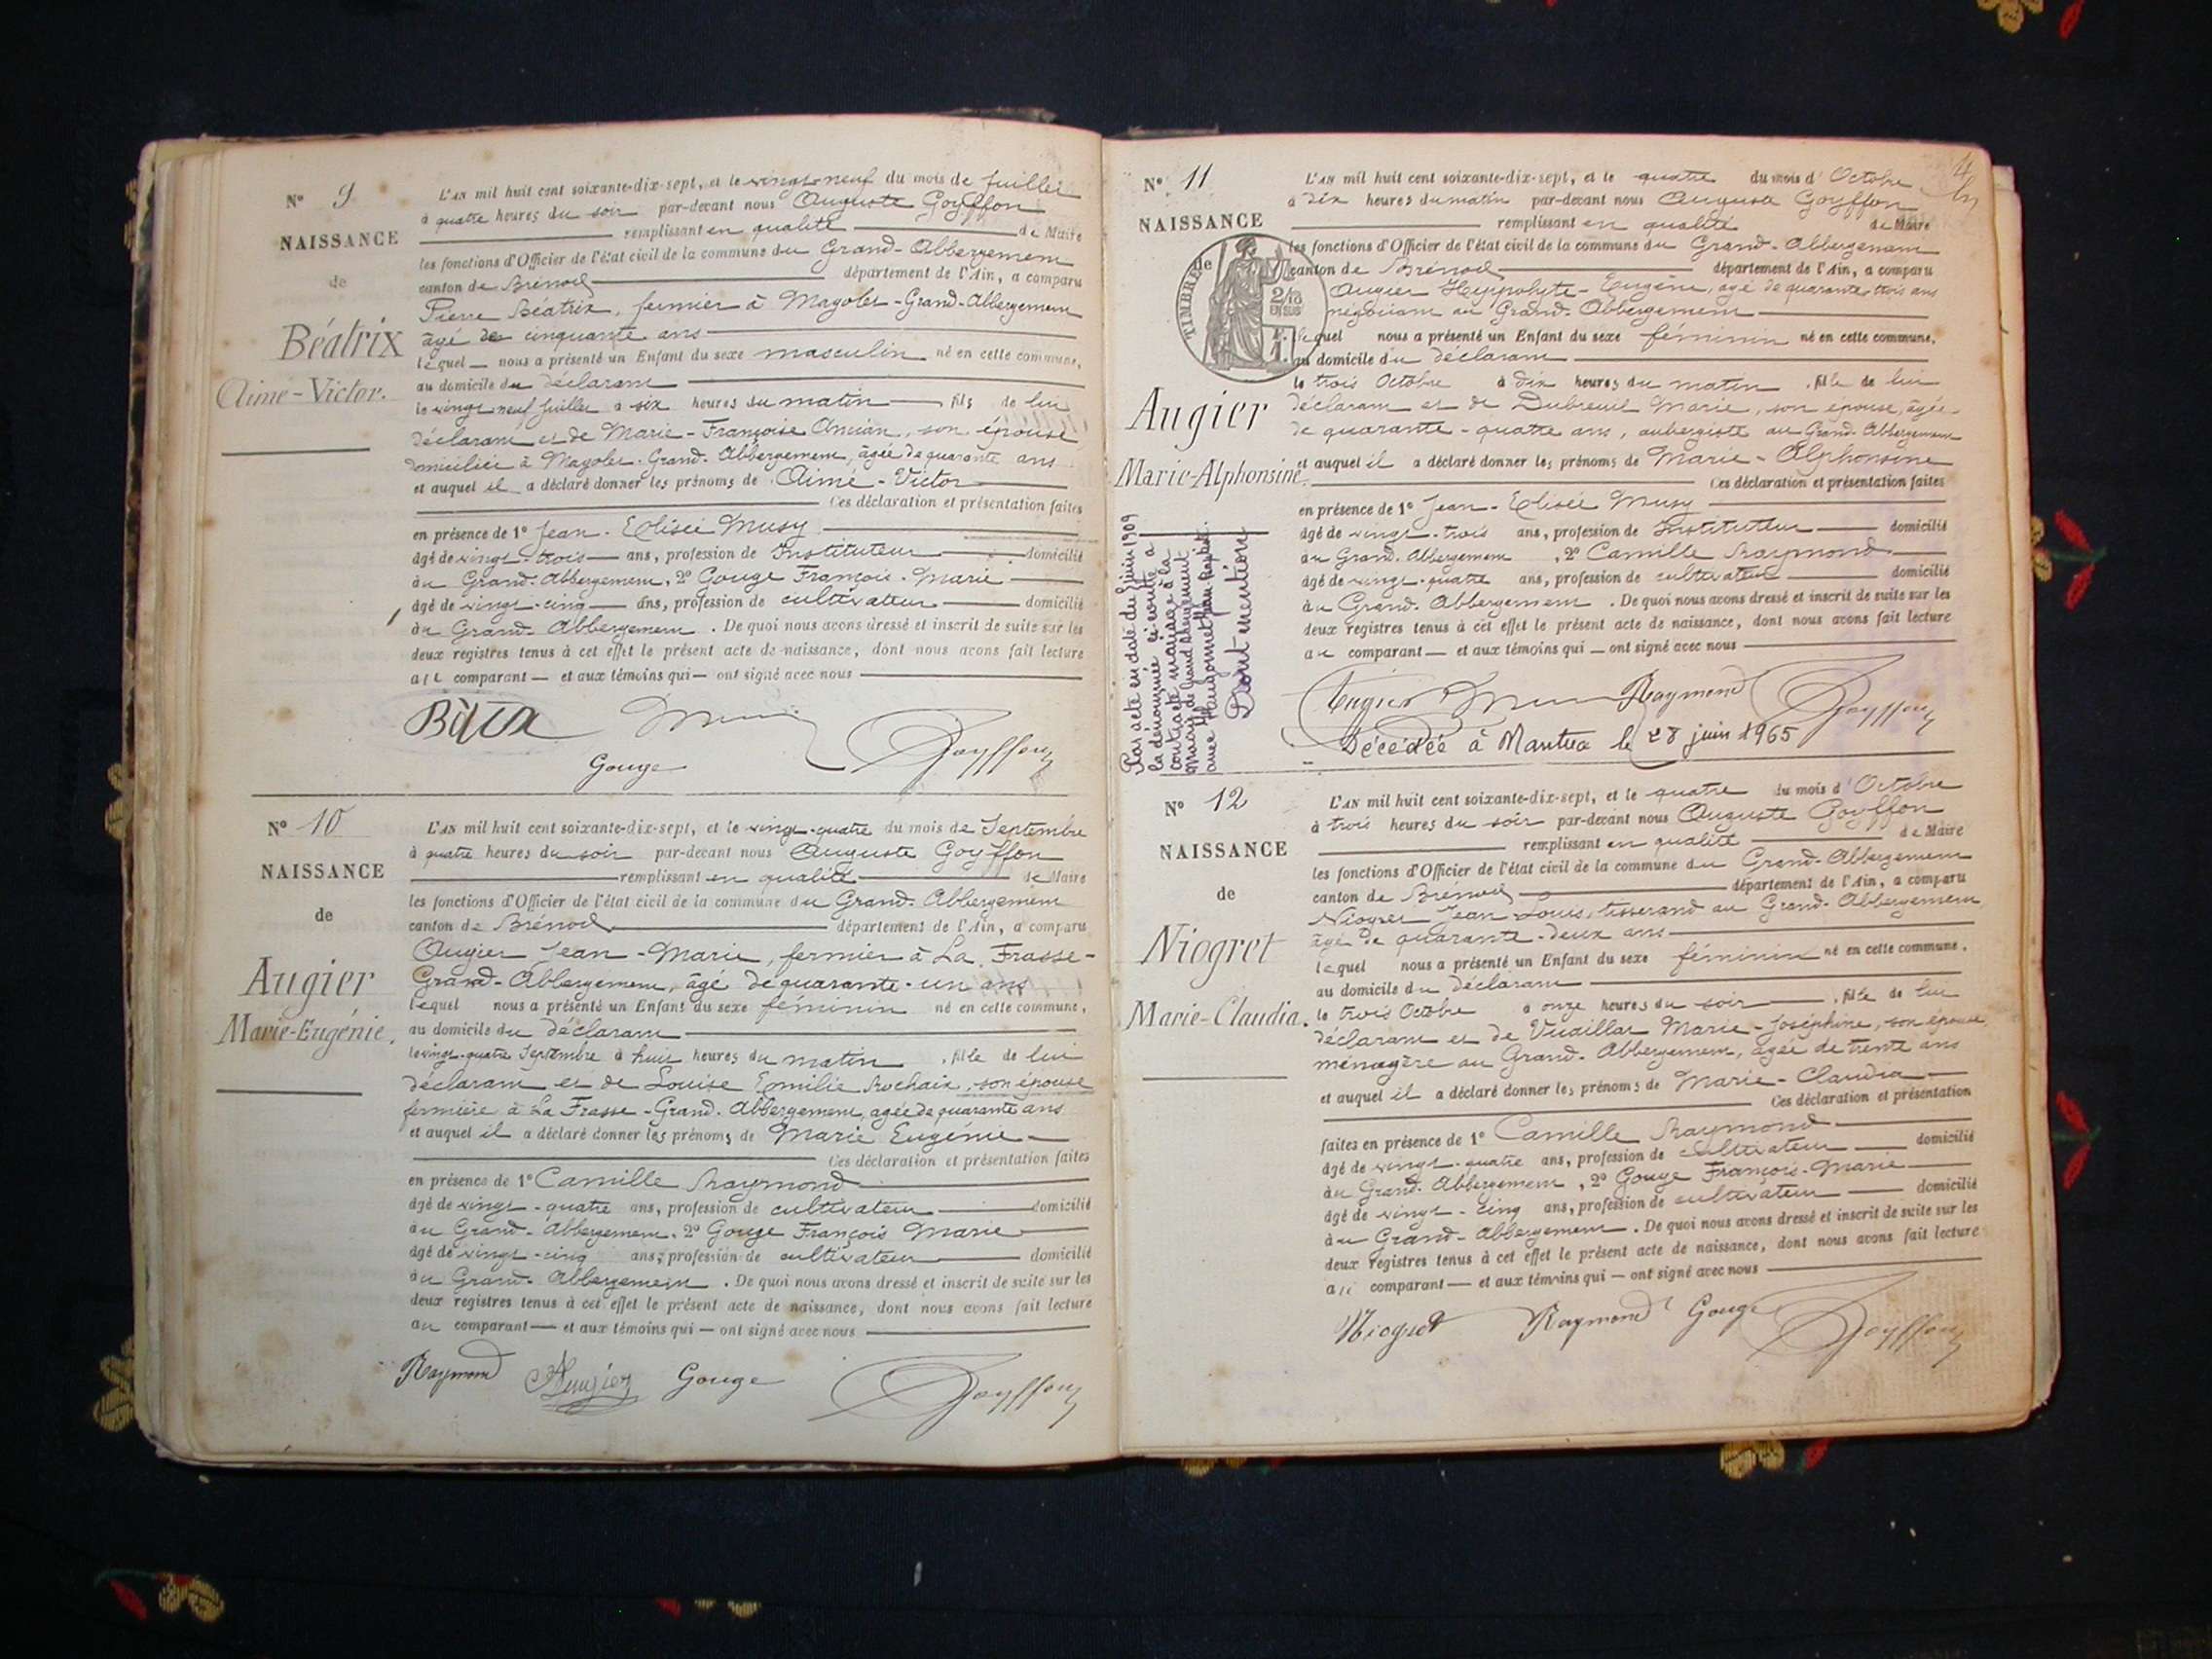 N° 9
NAISSANCE
de
Béatrix
Aimé-Victor.
L'AN mil huit cent soixante-dix-sept, et le vingt-neuf du mois de Juillet
à quatre heures du soir par-devant nous Auguste Goyffon
remplissant en qualité de Maire
les fonctions d'Officier de l'état civil de la commune du Grand-Abbergement
canton de Brénod département de l'Ain, a comparu
Pierre Béatrix, fermier à Magolet-Grand-Abbergement
âgé de cinquante ans
lequel nous a présenté un Enfant du sexe masculin né en cette commune,
au domicile du déclarant
le vingt neuf Juillet à six heures du matin, fils de lui
déclarant et de Marie-Françoise Ancian, son épouse
domiciliée à Magolet-Grand-Abbergement, âgée de quarante ans
et auquel il a déclaré donner les prénoms de Aimé-Victor
Ces déclaration et présentation faites
en présence de 1° Jean-Elisée Musy
âgé de vingt-trois ans, profession de Instituteur domicilié
au Grand-Abbergement, 2° Gouge François-Marie
âgé de vingt-cinq ans, profession de cultivateur domicilié
au Grand-Abbergement. De quoi nous avons dressé et inscrit de suite sur les
deux registres tenus à cet effet le présent acte de naissance, dont nous avons fait lecture
au comparant et aux témoins qui ont signé avec nous
Gouge Goyffon
N° 10
NAISSANCE
de
Augier
Marie-Eugénie.
L'AN mil huit cent soixante-dix-sept, et le vingt-quatre du mois de Septembre
à quatre heures du soir par-devant nous Auguste Goyffon
remplissant en qualité de Maire
les fonctions d'Officier de l'état civil de la commune du Grand-Abbergement
canton de Brénod département de l'Ain, a comparu
Augier Jean-Marie, fermier à La Frasse-
Grand-Abbergement, âgé de quarante-un ans
lequel nous a présenté un Enfant du sexe féminin né en cette commune,
au domicile du déclarant
le vingt-quatre Septembre à huit heures du matin, fille de lui
déclarant et de Louise Emilie Rochaix, son épouse
fermière à La Frasse-Grand-Abbergement, âgée de quarante ans
et auquel il a déclaré donner les prénoms de Marie Eugénie
Ces déclaration et présentation faites
en présence de 1° Camille Raymond
âgé de vingt-quatre ans, profession de cultivateur domicilié
au Grand-Abbergement, 2° Gouge François Marie
âgé de vingt-cinq ans, profession de cultivateur domicilié
au Grand-Abbergement. De quoi nous avons dressé et inscrit de suite sur les
deux registres tenus à cet effet le présent acte de naissance, dont nous avons fait lecture
au comparant et aux témoins qui ont signé avec nous
Raymond Augier Gouge Goyffon
N° 11
NAISSANCE
de
TIMBRE
2/10 EN SUS
Augier
Marie-Alphonsine.
L'AN mil huit cent soixante-dix-sept, et le quatre du mois d'Octobre
à dix heures du matin par-devant nous Auguste Goyffon
remplissant en qualité de Maire
les fonctions d'Officier de l'état civil de la commune du Grand-Abbergement
canton de Brénod département de l'Ain, a comparu
Augier Hyppolyte-Eugène, âgé de quarante trois ans
négociant au Grand-Abbergement
lequel nous a présenté un Enfant du sexe féminin né en cette commune,
au domicile du déclarant
le trois Octobre à dix heures du matin, fille de lui
déclarant et de Dubreuil Marie, son épouse, âgée
de quarante-quatre ans, aubergiste au Grand-Abbergement
et auquel il a déclaré donner les prénoms de Marie-Alphonsine
Ces déclaration et présentation faites
en présence de 1° Jean-Elisée Musy
âgé de vingt-trois ans, profession de Instituteur domicilié
au Grand-Abbergement, 2° Camille Raymond
âgé de vingt-quatre ans, profession de cultivateur domicilié
au Grand-Abbergement. De quoi nous avons dressé et inscrit de suite sur les
deux registres tenus à cet effet le présent acte de naissance, dont nous avons fait lecture
au comparant et aux témoins qui ont signé avec nous
Augier Raymond Goyffon
Décédée à Nantua le 28 juin 1965
Par acte en date du juin 1909
la dénommée ci-contre a
contracté mariage à la
mairie de Grand Abergement
avec
Dont mention
N° 12
NAISSANCE
de
Niogret
Marie-Claudia.
L'AN mil huit cent soixante-dix-sept, et le quatre du mois d'Octobre
à trois heures du soir par-devant nous Auguste Goyffon
remplissant en qualité de Maire
les fonctions d'Officier de l'état civil de la commune du Grand-Abbergement
canton de Brénod département de l'Ain, a comparu
Niogret Jean Louis, tisserand au Grand-Abbergement,
âgé de quarante-deux ans
lequel nous a présenté un Enfant du sexe féminin né en cette commune,
au domicile du déclarant
le trois Octobre à onze heures du soir, fille de lui
déclarant et de Vuaillat Marie-Joséphine, son épouse
ménagère au Grand-Abbergement, âgée de trente ans
et auquel il a déclaré donner les prénoms de Marie-Claudia
Ces déclaration et présentation
faites en présence de 1° Camille Raymond
âgé de vingt-quatre ans, profession de cultivateur domicilié
au Grand-Abbergement, 2° Gouge François-Marie
âgé de vingt-cinq ans, profession de cultivateur domicilié
au Grand-Abbergement. De quoi nous avons dressé et inscrit de suite sur les
deux registres tenus à cet effet le présent acte de naissance, dont nous avons fait lecture
au comparant et aux témoins qui ont signé avec nous
Niogret Raymond Gouge Goyffon